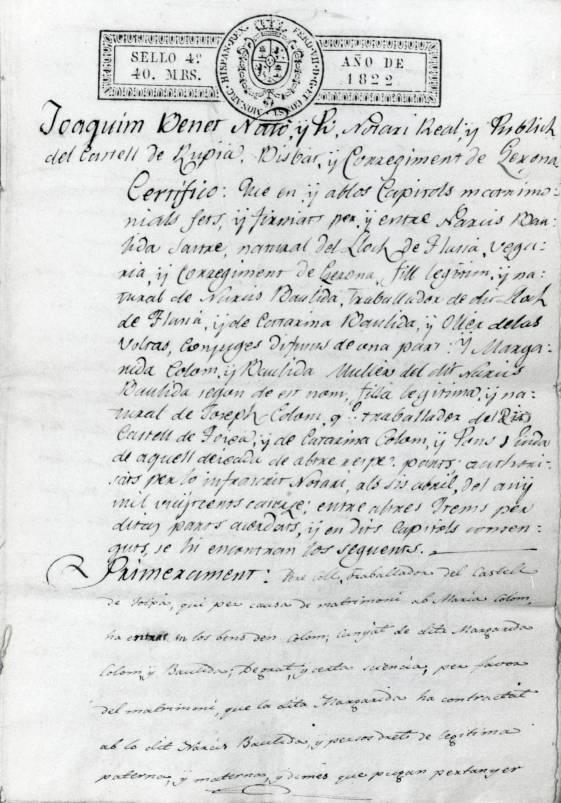 HISPAN. REX. FERD. VII. D. G. ET CONST.
SELLO 4º AÑO DE
40. MRS. 1822
Joaquim Venet Nató, y P. Notari Real, y Publich
del Castell de Rupiá. Bisbat, y Corregiment de Gerona
Certifico: Que en y ablos Capitols matrimo-
nials fets, y firmats per, y entre Narcis Bau-
lida Sastre, natural del Lloch de Flassá, Vegue-
ria, y Corregiment de Gerona, fill llegitim, y na-
tural de Narcis Baulida, traballador de dit Lloch
de Flassá, y de Catarina Baulida, y Oller de las
Voltas, Conjuges difunts de una part: Y Marga-
rida Colom, y Baulida Muller del dit Narcis
Baulida segon de est nom, filla llegitima, y na-
tural de Joseph Colom, q.º traballador del
Castell de Foixá, y de Catarina Colom, y Pons
de aquell deixada de altre respe. part: authori-
sats per lo infrascrit Notari, als sis abril, del any
mil vuitcents catorze; entre altres Items per
ditas parts acordats, y en dits Capitols contin-
guts, se hi encontran los seguents.
Primerament: Pere Coll, traballador del Castell
de Foixá, qui per causa de matrimoni ab Maria Colom,
ha entrat en los bens den Colom; Cunyat de dita Margarida
Colom, y Baulida; Degrat, y certa sciencia, per favor
del matrimoni, que la dita Margarida ha contractat
ab lo dit Narcis Baulida, y per sos drets de llegitima
paterna, y materna, y demes que pugan pertanyer